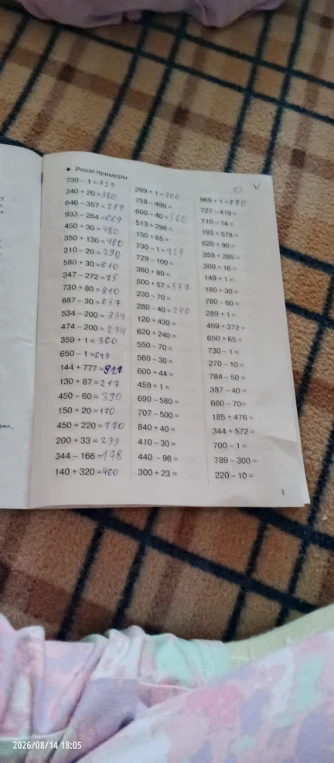 • Реши примеры.
730 - 1 = 729
340 + 20 = 360
646 - 357 = 289
933 - 264 = 669
450 + 30 = 480
350 + 130 = 480
310 - 20 = 290
580 + 30 = 610
347 - 272 = 75
730 + 80 = 810
687 - 30 = 657
534 - 200 = 334
474 - 200 = 274
359 + 1 = 360
650 - 1 = 649
144 + 777 = 921
130 + 87 = 217
450 - 60 = 390
150 + 20 = 170
450 + 220 =
200 + 33 = 233
344 - 166 = 178
140 + 320 = 460
299 + 1 = 300
758 - 499 =
600 - 40 = 560
513 + 298 =
150 + 65 =
730 - 1 = 729
729 - 100 =
360 + 80 =
500 + 57 = 557
230 - 70 =
280 - 40 = 240
120 + 430 =
620 + 240 =
550 - 70 =
560 - 30 =
600 + 44 =
459 + 1 =
690 - 580 =
707 - 500 =
840 + 40 =
410 - 30 =
440 - 96 =
300 + 23 =
969 + 1 =
727 - 419 =
710 - 14 =
193 + 578 =
620 + 90 =
358 + 285 =
300 + 16 =
149 + 1 =
180 + 30 =
780 - 60 =
289 + 1 =
459 + 372 =
650 + 65 =
730 - 1 =
270 - 10 =
784 - 50 =
387 - 40 =
660 - 70 =
185 + 476 =
344 + 572 =
700 - 1 =
789 - 300 =
220 - 10 =
1
2026/08/14 18:05